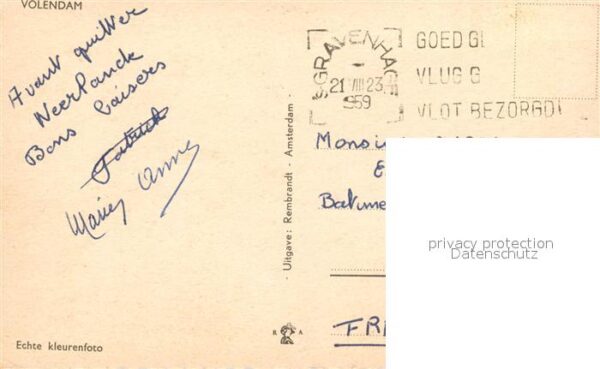 VOLENDAM
Avant quitter
Neerlande
Bons baisers
Patrick
Marie Anne
Echte kleurenfoto
Uitgave: Rembrandt - Amsterdam -
'S GRAVENHAGE
21 VIII 23
1959
GOED G
VLUG G
VLOT BEZORGD
Monsi
E
Batime
FR
R A
privacy protection
Datenschutz